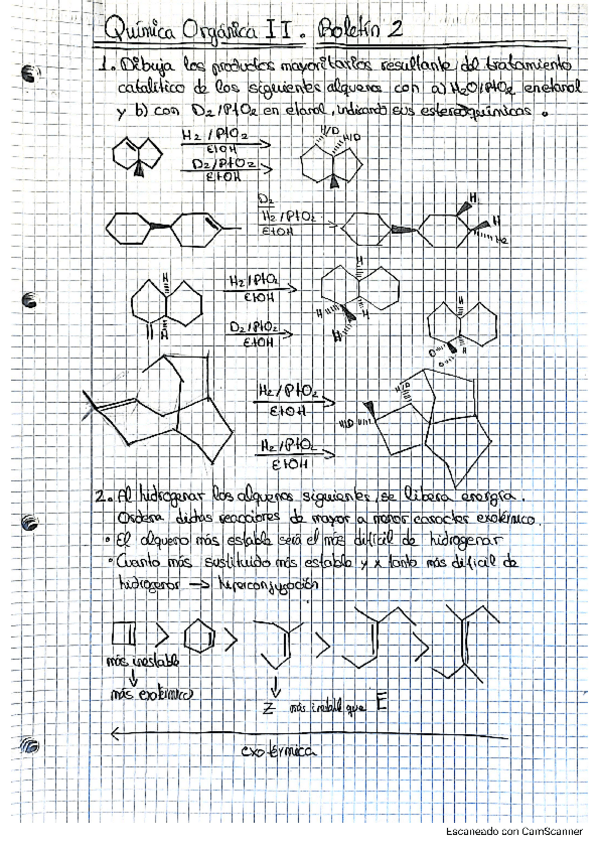 Química Orgánica II. Boletín 2
1. Dibuja los productos mayoritarios resultante del tratamiento
catalítico de los siguientes alquenos con a) H2O/PtO2 en etanol
y b) con D2/PtO2 en etanol, indicando sus estereoquímicas.
H2/PtO2
EtOH
D2/PtO2
EtOH
H/D
H/D
D2
H2/PtO2
EtOH
H
H
H
H
H2/PtO2
EtOH
D2/PtO2
EtOH
H
H
H
H
H
H
D
D
H
H2/PtO2
EtOH
H2/PtO2
EtOH
H/D
H/D
2. Al hidrogenar los alquenos siguientes, se libera energía.
Ordena dichas reacciones de mayor a menor caracter exotérmico.
• El alqueno más estable será el más difícil de hidrogenar
• Cuanto más sustituido más estable y x tanto más difícil de
hidrogenar → hiperconjugación
> > > >
más inestable
↓
más exotérmico
↓
Z más inestable que E
exotérmica
Escaneado con CamScanner